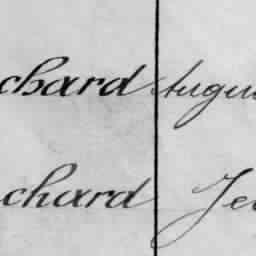 chard Augu
chard Je